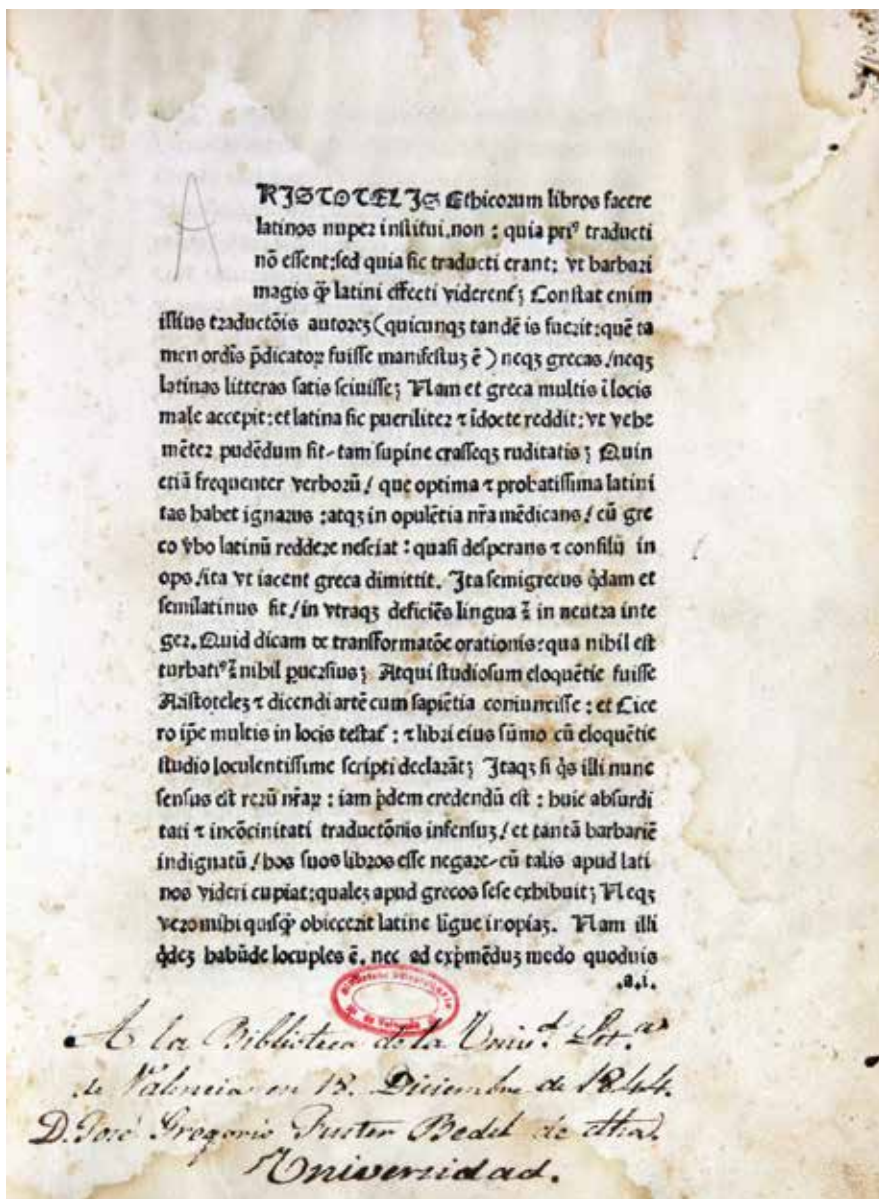 A
RISTOTELIS Ethicorum libros facere
latinos nuper institui.non : quia pri⁹ traducti
nō essent:sed quia sic traducti erant: vt barbari
magis q̄ latini effecti viderent̄ʒ Constat enim
illius traductōis autoreʒ (quicunqʒ tandē is fuerit:quē ta
men ordīs p̄dicatoꝝ fuisse manifestuʒ ē) neqʒ grecas/neqʒ
latinas litteras satis sciuisseʒ Nam et greca multis ī locis
male accepit:et latina sic pueriliter ⁊ īdocte reddit: vt vehe
mēter pudēdum sit-tam supine crasseqʒ ruditatisʒ Quin
etiā frequenter verboꝛū/ que optima ⁊ probatissima latini
tas habet ignarus :atqʒ in opulētia nr̄a mēdicans/ cū gre
co v̄bo latinū reddere nesciat : quasi desperans ⁊ consilij in
ops/ita vt iacent greca dimittit. Ita semigrecus q̇dam et
semilatinus fit/in vtraqʒ deficiēs lingua ⁊ in neutra inte
ger. Quid dicam de transformatōe orationis:qua nihil est
turbati⁹⁊nihil ꝑuersiusʒ Atqui studiosum eloquētie fuisse
Aristoteleʒ ⁊ dicendi artē cum sapiētia coniunxisse : et Cice
ro ip̄e multis in locis testat̄ : ⁊ libri eius sūmo cū eloquētie
studio loculentissime scripti declarātʒ Itaqʒ si q̇s illi nunc
sensus est rerū nr̄aꝝ : iam p̄dem credendū est : huic absurdi
tati ⁊ incōcinitati traductōnis infensuʒ/ et tantā barbariē
indignatū/hos suos libros esse negare-cū talis apud lati
nos videri cupiat:qualeʒ apud grecos sese exhibuitʒ Neqʒ
vero mihi quisq̄ obiecerit latine līgue inopiaʒ. Nam illi
q̇deʒ habūde locuples ē. nec ad exp̄mēduʒ modo quoduis
.a.i.
Biblioteca Universitaria
de Valencia
A la Biblioteca de la Univ.ᵈ Lit.ᵃ
de Valencia en 18. Diciembre de 1844.
D. José Gregorio Fuster Bedel de dha.
Universidad.